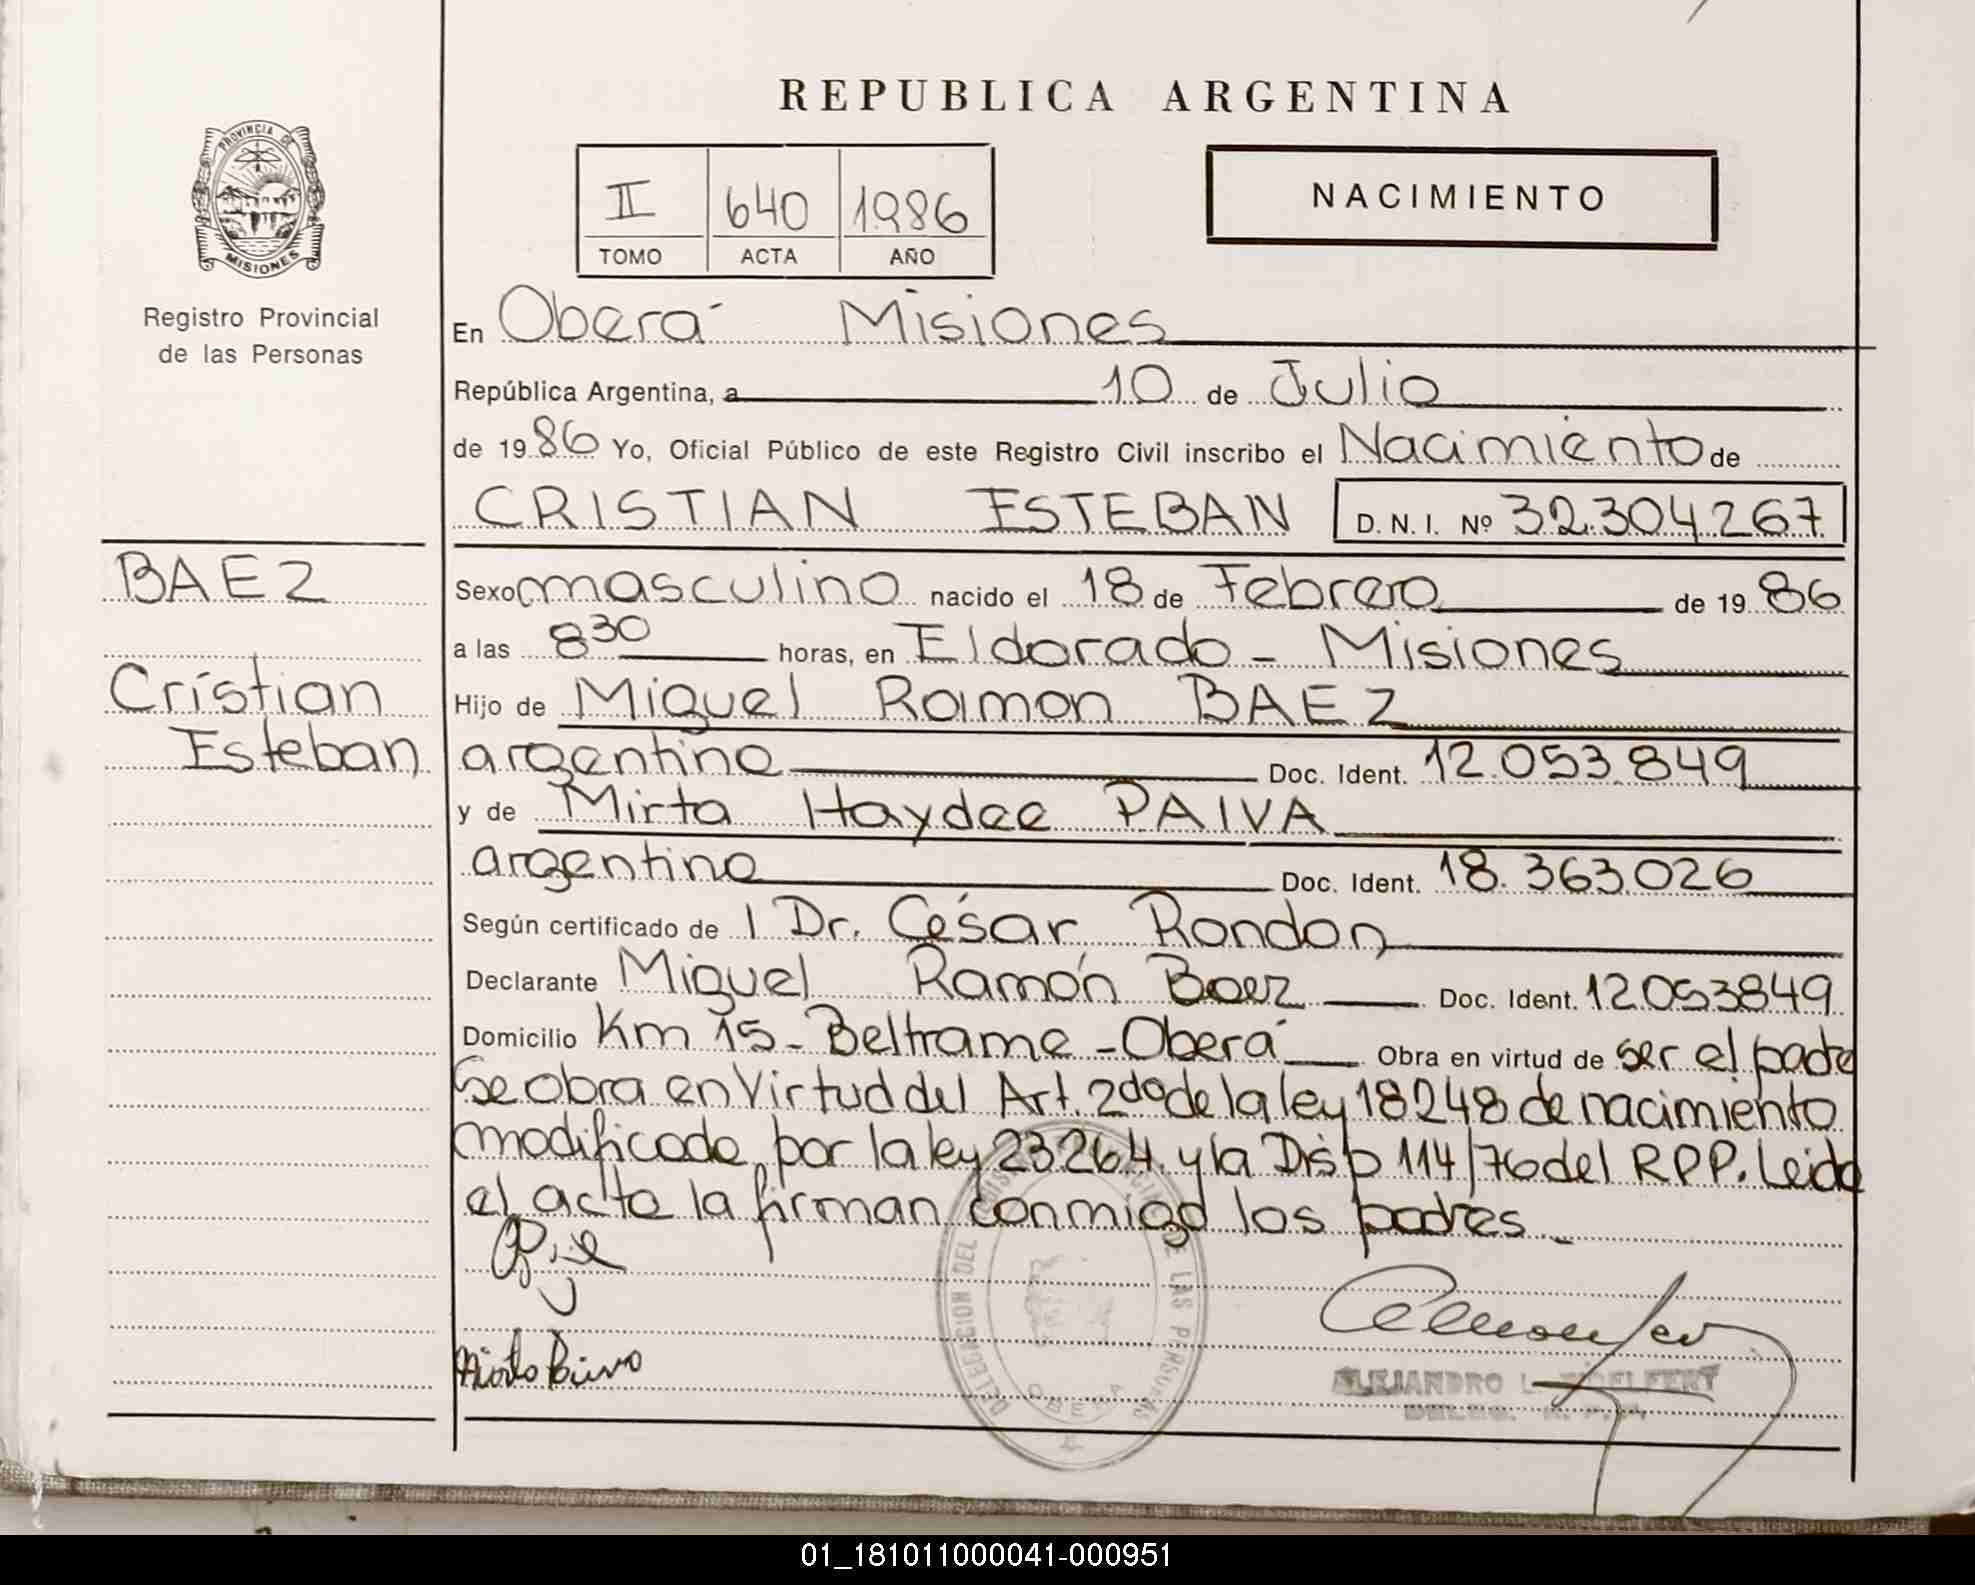 REPUBLICA ARGENTINA
PROVINCIA DE
MISIONES
Registro Provincial
de las Personas
II 640 1986
TOMO ACTA AÑO
NACIMIENTO
En Oberá Misiones
República Argentina, a 10 de Julio
de 1986 Yo, Oficial Público de este Registro Civil inscribo el Nacimiento de
CRISTIAN ESTEBAN D. N. I. Nº 32.304.267
BAEZ
Cristian
Esteban
Sexo masculino nacido el 18 de Febrero de 1986
a las 830 horas, en Eldorado - Misiones
Hijo de Miguel Ramon BAEZ
argentino Doc. Ident. 12.053.849
y de Mirta Haydee PAIVA
argentina Doc. Ident. 18.363.026
Según certificado de l Dr. César Rondon
Declarante Miguel Ramón Baez Doc. Ident. 12053849
Domicilio Km 15 - Beltrame - Oberá Obra en virtud de ser el padre
Se obra en Virtud del Art. 2do de la ley 18248 de nacimiento
modificada por la ley 23264 y la Disp 114/76 del RPP. Leida
el acta la firman conmigo los padres -
DELEGACION DEL DE LAS PERSONAS
OBERA
ALEJANDRO L.
DELEG.
01_181011000041-000951